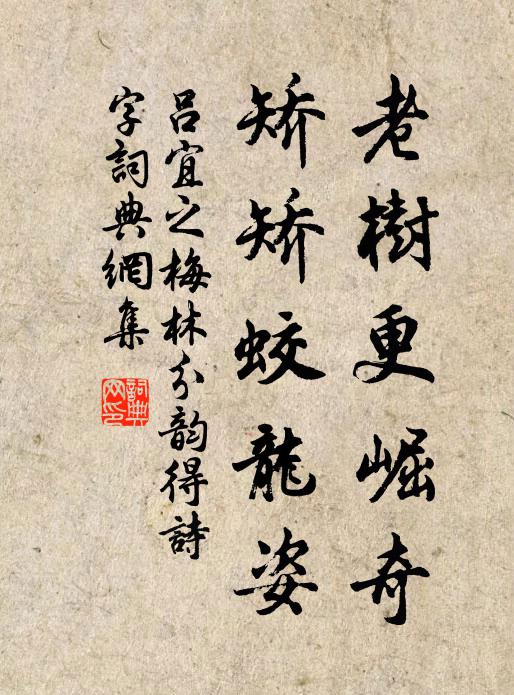 老樹更崛奇
矯矯蛟龍姿
呂宜之梅林分韵得詩
字詞典網集
詞典網印